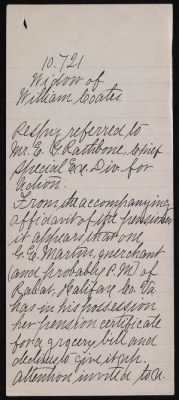 10.721
Widow of
William Coates.
Respy referred to
Mr. E. G. Rathbone, Chief
Special Ex. Div. for
action.
From the accompanying
affidavit of the pensioner
it appears that one
G. E. Martin, a merchant
(and probably P.M.) of
Halifax Co. Va
has in his possession
her pension certificate
for a grocery bill and
declines to give it up.
Attention invited to